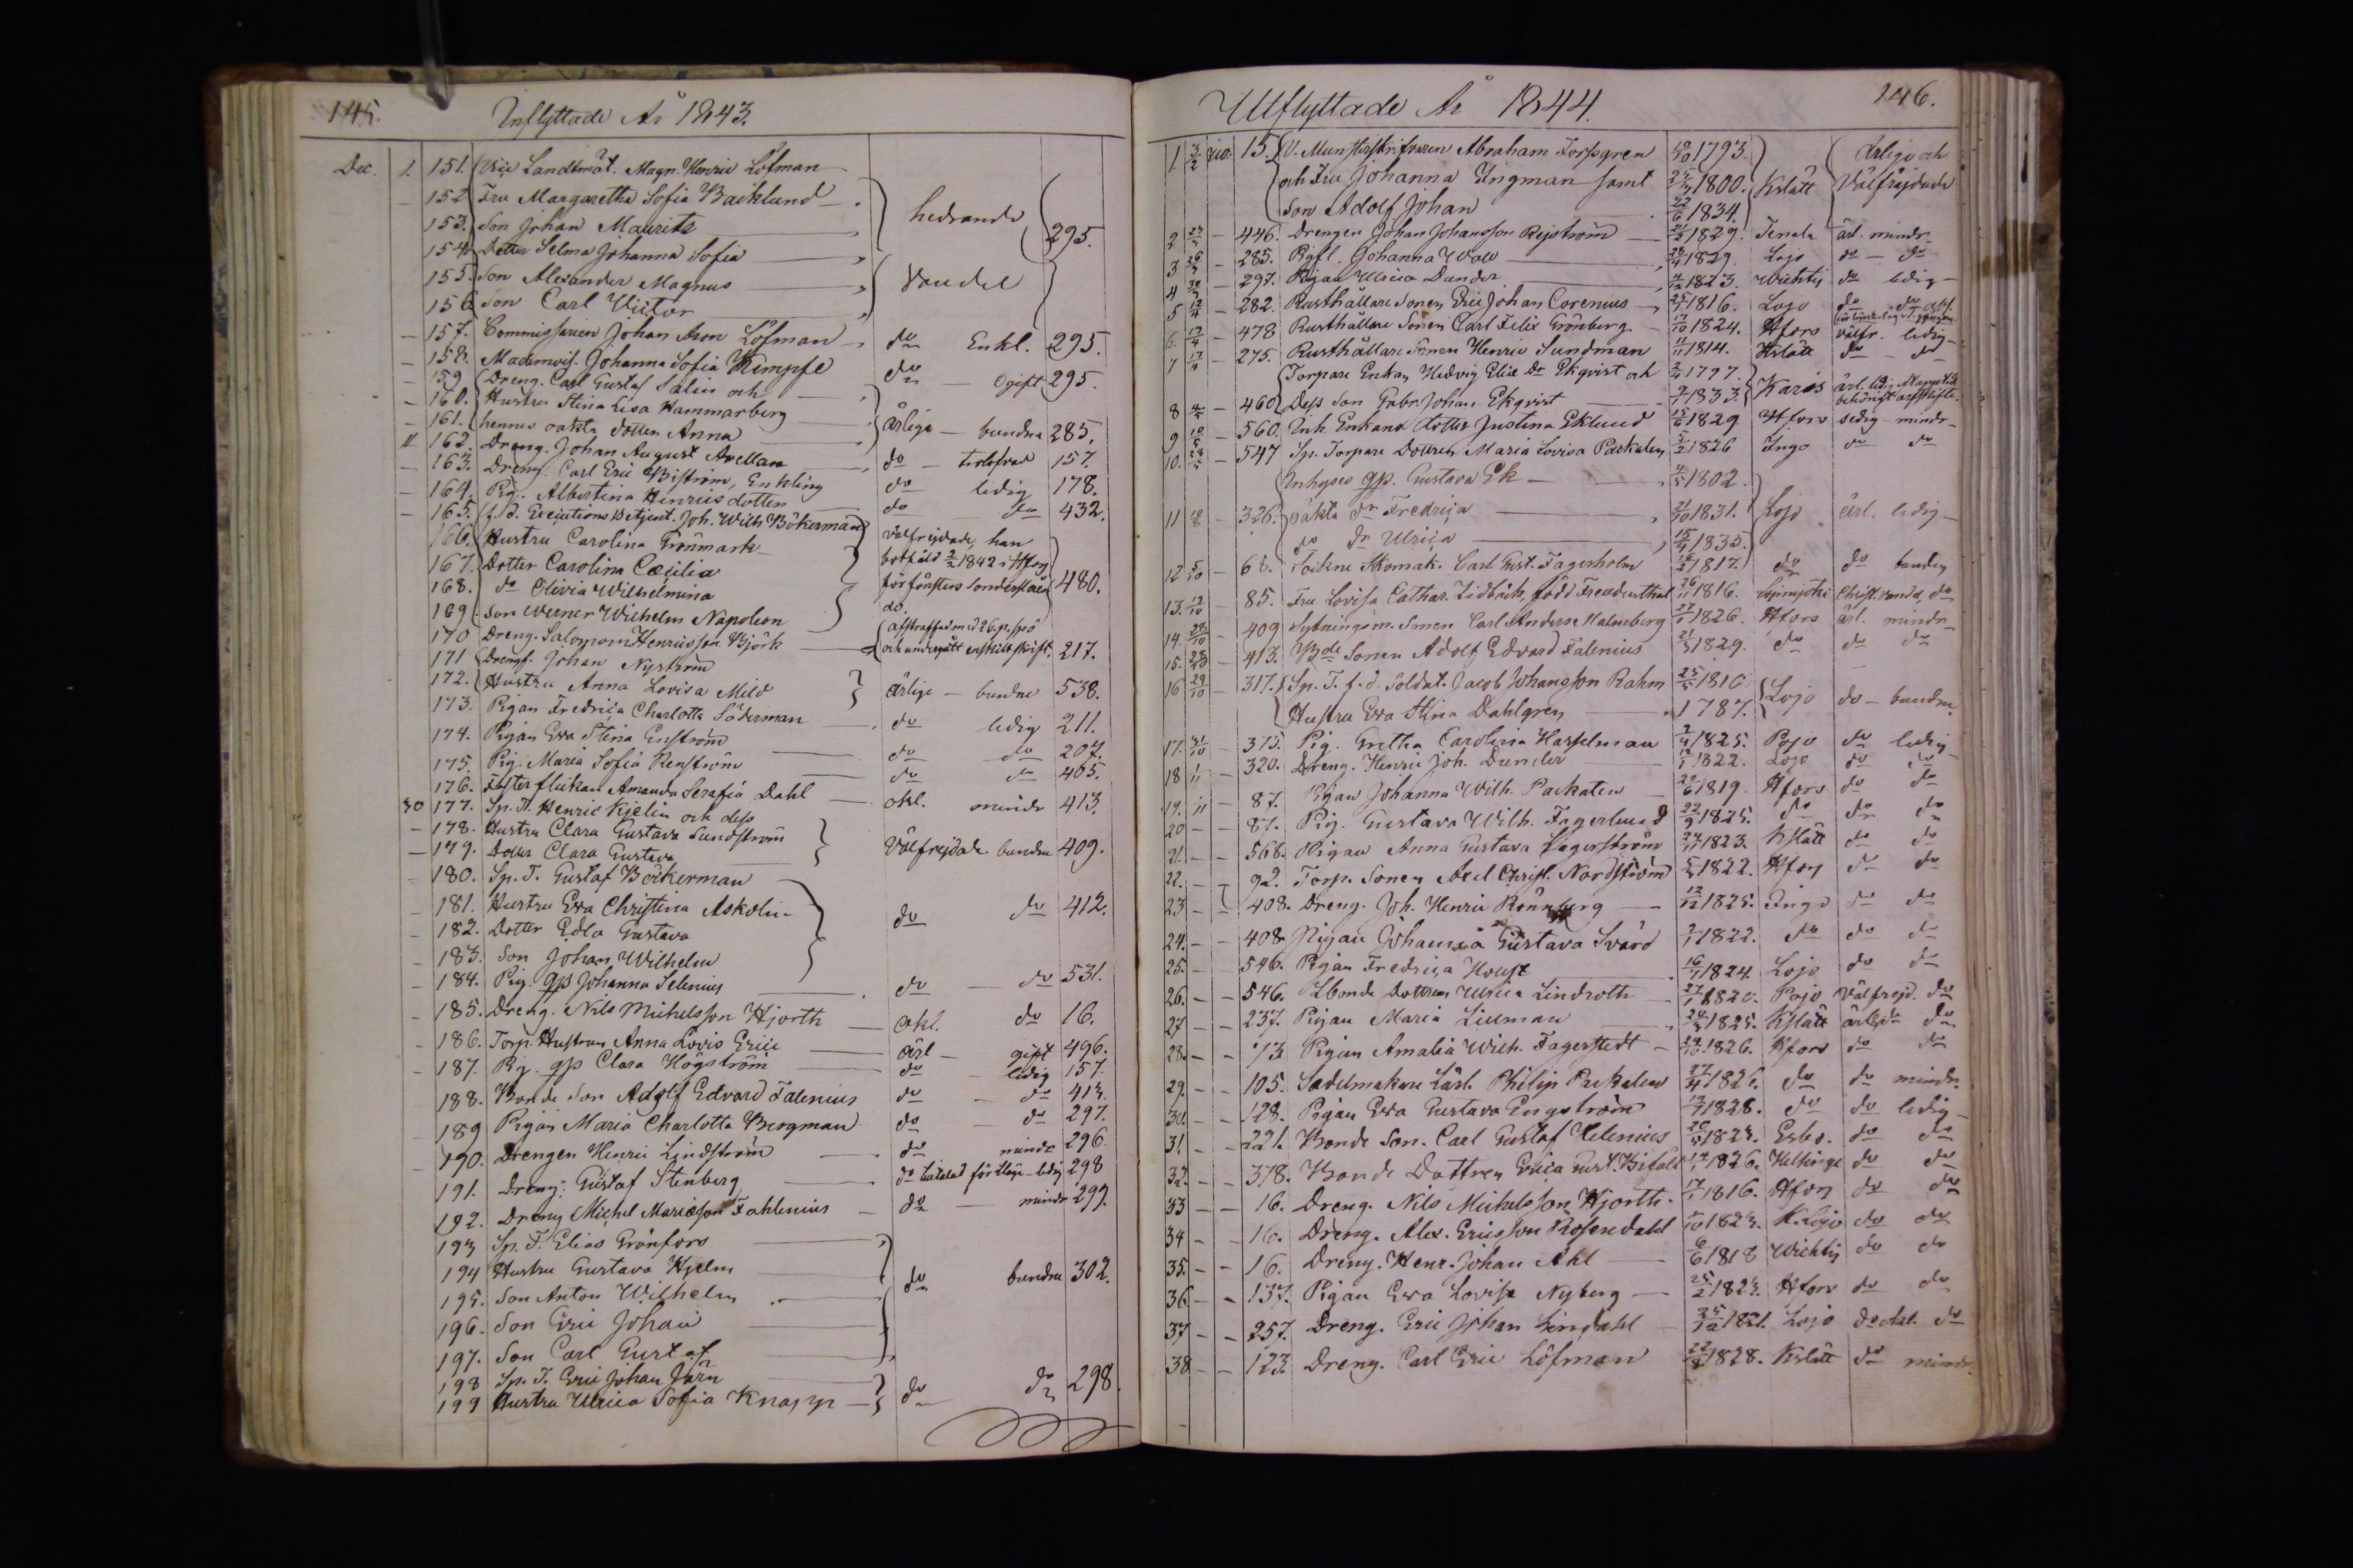 145.
Inflyttade År 1843.
Dec. 1. 151. Vice Landtmät. Magn. Henric Löfman
152 Fru Margaretha Sofia Backlund
153. Son Johan Mauritz
hedrande
154 Dotter Selma Johanna Sofia
295.
155. Son Alexander Magnus
Vandel
156 Son Carl Victor
157. Commissarien Johan Aron Löfman do Enkl. 295.
158. Mademois. Johanna Sofia Kempfe do Ogift 295.
159 Dreng. Carl Gustaf Salin och
160. Hustru Stina Lisa Hammarberg
161. hennes oäkta dotter Anna ärlige bundna 285.
162. Dreng. Johan August Avellan do trolofvad 157.
163. Dreng. Carl Eric Biström, Enkling do ledig 178.
164. Pig. Albertina Henricsdotter do do 432.
165. f.d. Executions Betjent. Joh. Wilh. Böckerman
166. Hustru Carolina Grönmark välfrejdade, han
167. Dotter Carolina Cæcilia botfäld 2/2 1842 i Hfors
168. do Olivia Wilhelmina för fönsters sönderslående 480.
169. Son Werner Wilhelm Napoleon
170 Dreng. Salomon Henricsson Björk afstraffad med 26. p. spö och undergått enskilt skrift. 217.
171 Drengf. Johan Nyström
172. Hustru Anna Lovisa Mild ärlige bundne 538.
173. Pigan Fredrica Charlotta Söderman do ledig 211.
174. Pigan Eva Stina Enström do do 207.
175. Pig. Maria Sofia Renström do do 405.
176. Fosterflickan Amanda Serafia Dahl okl. mindr 413.
30 177. Sp. T. Henric Kjelin och dess
178. Hustru Clara Gustava Sundström
179. Dotter Clara Gustava Välfrejdade bundna 409.
180. Sp. T. Gustaf Böckerman
181. Hustru Eva Christina Askolin do do 412.
182. Dotter Edla Gustava
183. Son Johan Wilhelm
184. Pig. qps Johanna Selenius do do 531.
185. Dreng. Nils Michelsson Hjorth okl. do 16.
186. Torp. Hustrun Anna Lovis. Eric ärl gift 496.
187. Pig. qps Clara Högström do ledig 157.
188. Bonde Son Adolf Edvard Falenius do do 413.
189 Pigan Maria Charlotta Bergman do do 297.
190. Drengen Henric Lindström do mindr 296.
191. Dreng. Gustaf Stenberg ledig 298
192. Dreng Michel Mariasson Fahlenius do mindr 297.
193 Sp. T. Elias Grönfors
194 Hustru Gustava Hjelm do bundna 302.
195. Son Anton Wilhelm
196. Son Eric Johan
197. Son Carl Gustaf
198 Sp. T. Eric Johan Järn
199 Hustru Ulrica Sofia Knapp do do 298.
Utflyttade År 1844.
146.
1. 3/2 15. V. Munsterskrifvaren Abraham Forssgren 1793. Ärlige och
och Fru Johanna Ingman samt 1800. Kslätt Välfrejdade
Son Adolf Johan 22/6 1834.
2 446. Drengen Johan Johansson Rejström 1829. Tenala ärl. mindr
3 285. Pgfl. Johanna Wall 1829. Lojo do do
4 297. Pigan Ulrica Dunder 1823. Wichtis do ledig
5 12/4 282. Rusthållare Sonen Eric Johan Corenius 1816. Lojo do do
6. 17/4 478 Rusthållare Sonen Carl Felix Grönberg 17/10 1824. Hfors välfr. ledig
7 17/4 275. Rusthållare Sonen Henric Sundman 11/11 1814. Kslätt do do
Torpare Enkan Hedvig Elis. Dr Ekqvist och 1797.
8 460 Dess Son Gabr. Johan Ekqvist 1833. Karis
9 560. Inh. Enkans dotter Justina Eklund 1829 Hfors ledig mindr
10. 547 Sp. Torpare Dottren Maria Lovisa Packalen 1826 Ingo do do
Inhyses qp. Gustava Ek 1802.
11 326. oäkta dr Fredrica 1831. Lojo ärl. ledig
do dr Ulrica 15/4 1835.
12 5/10 68. Sockne Skomak. Carl Gust. Fagerholm 1817. do do bunden
13. 12/10 85. Fru Lovisa Cathar. Lidbäck, född Freudenthal 26/11 1816. Christ. vandel, do
14. 28/10 409 Sytningsm. Sonen Carl Anders Malmberg 1826. Hfors ärl. mindr
15. 28/10 413. Bde Sonen Adolf Edvard Falenius 21/3 1829. do do do
16 29/10 317. Sp. T. f.d. Soldat. Jacob Johansson Rahm 25/5 1810
Hustru Eva Stina Dahlgren 1787. Lojo do bundne
17. 31/10 375. Pig. Gretha Carolina Hasselman 1825. Pojo do ledig
18 1/11 320. Dreng. Henric Joh. Dunder 1822. Lojo do do
19. 11 87. Pigan Johanna Wilh. Packalen 20/6 1819. Hfors do do
20 87. Pig. Gustava Wilh. Fagerlund 22/9 1825. do do do
21. 568. Pigan Anna Gustava Lagerström 24/11 1823. Kslätt do do
22. 92. Torp. Sonen Axel Christ. Nordström 1822. Hfors do do
23 408. Dreng. Joh. Henric Rönnberg 12/12 1825. Ingo do do
24. 408. Pigan Johanna Gustava Svärd 1822. do do do
25. 546. Pigan Fredrica Houst 1824. Lojo do do
26. 546. Bonde Dottren Ulrica Lindroth 1820. Pojo Välfrejd. do
27 237. Pigan Maria Lillman 1825. Kslätt do
28. 73 Pigan Amalia Wilh. Fagerstedt 1826. Hfors do do
29. 105. Sadelmakare Lärl. Philip Packalen 27/4 1826. do do mindr.
30. 128. Pigan Eva Gustava Engström 1828. do do ledig
31. 221. Bonde Son. Carl Gustaf Helenius 1825. Esbo. do do
32. 378. Bonde Dottren Erica Gust. 1826. Helsinge do do
33 16. Dreng. Nils Michelsson Hjorth 17/1 1816. Hfors do do
34 16. Dreng. Alex. Ericsson Rosendahl 1823. K.Lojo do do
35. 16. Dreng. Henr. Johan Ahl 6/6 1818 Wichtis do do
36 137. Pigan Eva Lovisa Nyberg 25/2 1823. Hfors do do
37 257. Dreng. Eric Johan Lindahl 25/12 1821. Lojo do okl. do
38 123. Dreng. Carl Eric Löfman 22/8 1828. Kslätt do mindr.